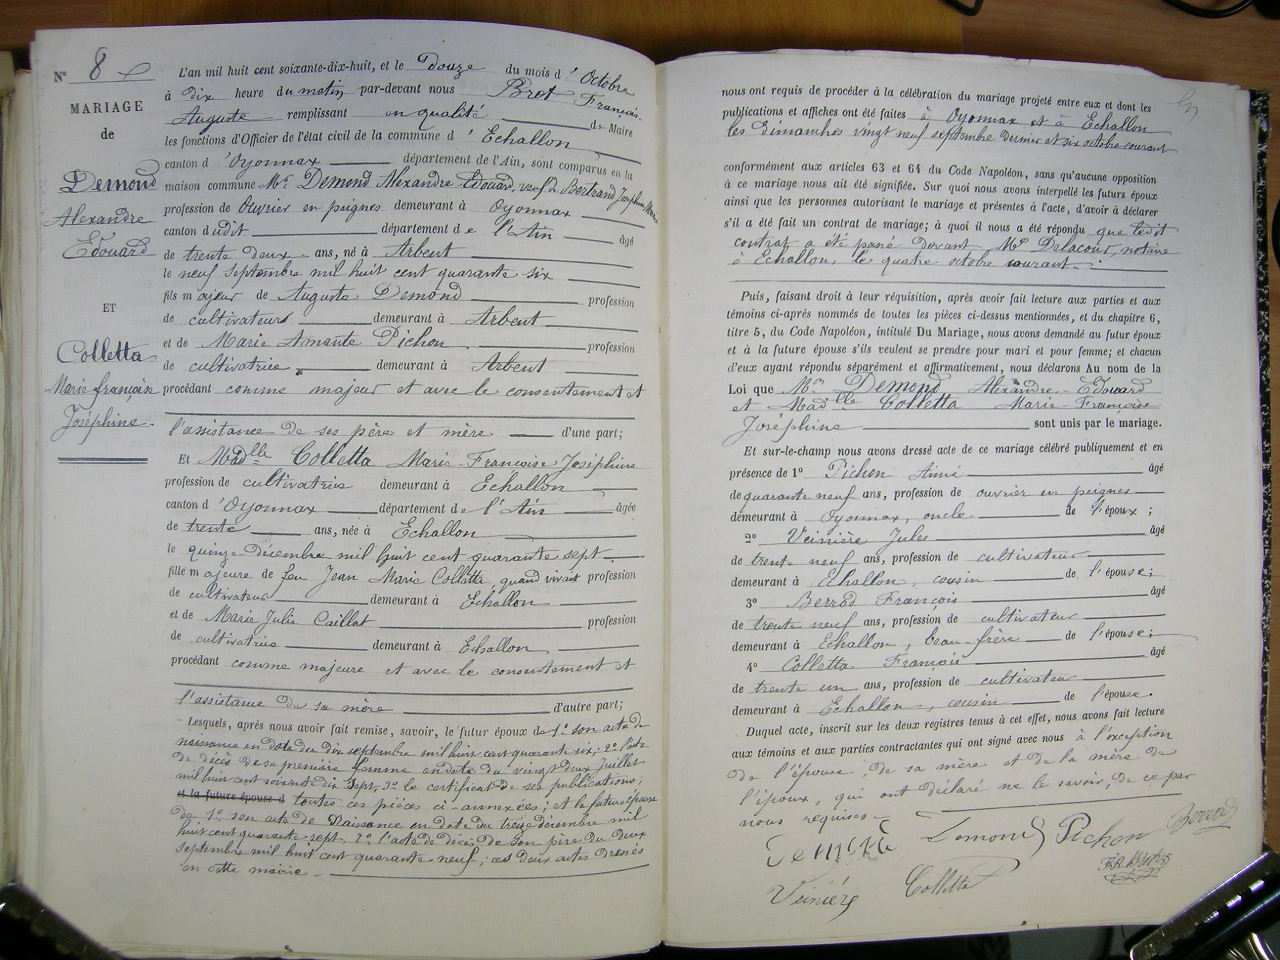 N° 8
MARIAGE
de
Demond
Alexandre
Edouard
ET
Colletta
Marie françoise
Joséphine.
L'an mil huit cent soixante-dix-huit, et le Douze du mois d'Octobre
à dix heure du matin par-devant nous Brot François-
Auguste remplissant en qualité de Maire
les fonctions d'Officier de l'état civil de la commune d'Echallon
canton d'Oyonnax département de l'Ain, sont comparus en la
maison commune Mr Demond Alexandre Edouard, veuf de Bertrand Joséphine Marie
profession de Ouvrier en peignes demeurant à Oyonnax
canton dudit département de l'Ain âgé
de trente deux ans, né à Arbent
le neuf septembre mil huit cent quarante six
fils majeur de Auguste Demond profession
de cultivateur demeurant à Arbent
et de Marie Amante Pichon profession
de cultivatrice demeurant à Arbent
procédant comme majeur et avec le consentement et
l'assistance de ses père et mère d'une part;
Et Madlle Colletta Marie-Françoise-Joséphine
profession de cultivatrice demeurant à Echallon
canton d'Oyonnax département de l'Ain âgée
de trente ans, née à Echallon
le quinze décembre mil huit cent quarante sept
fille majeure de feu Jean Marie Colletta, quand vivait profession
de cultivateur demeurant à Echallon
et de Marie Julie Caillat profession
de cultivatrice demeurant à Echallon
procédant comme majeure et avec le consentement et
l'assistance de sa mère d'autre part;
Lesquels, après nous avoir fait remise, savoir, le futur époux de 1° son acte de
naissance en date du dix septembre mil huit cent quarante six; 2° l'acte
de décès de sa première femme en date du vingt deux Juillet
mil huit cent soixante dix sept, 3° le certificat de ses publications;
et la future épouse d toutes ces pièces ci-annexées; et la future épouse
de 1° son acte de Naissance en date du treize décembre mil
huit cent quarante sept, 2° l'acte de décès de son père du deux
septembre mil huit cent quarante neuf; ces deux actes dressés
en cette mairie
nous ont requis de procéder à la célébration du mariage projeté entre eux et dont les
publications et affiches ont été faites à Oyonnax et à Echallon
les dimanches vingt neuf septembre dernier et six octobre courant
conformément aux articles 63 et 64 du Code Napoléon, sans qu'aucune opposition
à ce mariage nous ait été signifiée. Sur quoi nous avons interpellé les futurs époux
ainsi que les personnes autorisant le mariage et présentes à l'acte, d'avoir à déclarer
s'il a été fait un contrat de mariage; à quoi il nous a été répondu que ledit
contrat a été passé devant Me Delacour, notaire
à Echallon, le quatre octobre courant.
Puis, faisant droit à leur réquisition, après avoir fait lecture aux parties et aux
témoins ci-après nommés de toutes les pièces ci-dessus mentionnées, et du chapitre 6,
titre 5, du Code Napoléon, intitulé Du Mariage, nous avons demandé au futur époux
et à la future épouse s'ils veulent se prendre pour mari et pour femme; et chacun
d'eux ayant répondu séparément et affirmativement, nous déclarons Au nom de la
Loi que Mr Demond Alexandre-Edouard
et Madlle Colletta Marie-Françoise
Joséphine sont unis par le mariage.
Et sur-le-champ nous avons dressé acte de ce mariage célébré publiquement et en
présence de 1° Pichon Aimé âgé
de quarante neuf ans, profession de ouvrier en peignes
demeurant à Oyonnax, oncle de l'époux;
2° Veinière Jules âgé
de trente neuf ans, profession de cultivateur
demeurant à Echallon, cousin de l'épouse;
3° Berrod François âgé
de trente neuf ans, profession de cultivateur
demeurant à Echallon, beau-frère de l'épouse;
4° Colletta François âgé
de trente un ans, profession de cultivateur
demeurant à Echallon, cousin de l'épouse.
Duquel acte, inscrit sur les deux registres tenus à cet effet, nous avons fait lecture
aux témoins et aux parties contractantes qui ont signé avec nous à l'exception
de l'épouse, de sa mère et de la mère de
l'époux, qui ont déclaré ne le savoir, de ce par
nous requises.
Demond Demond Pichon Berrod
Veinière Colletta